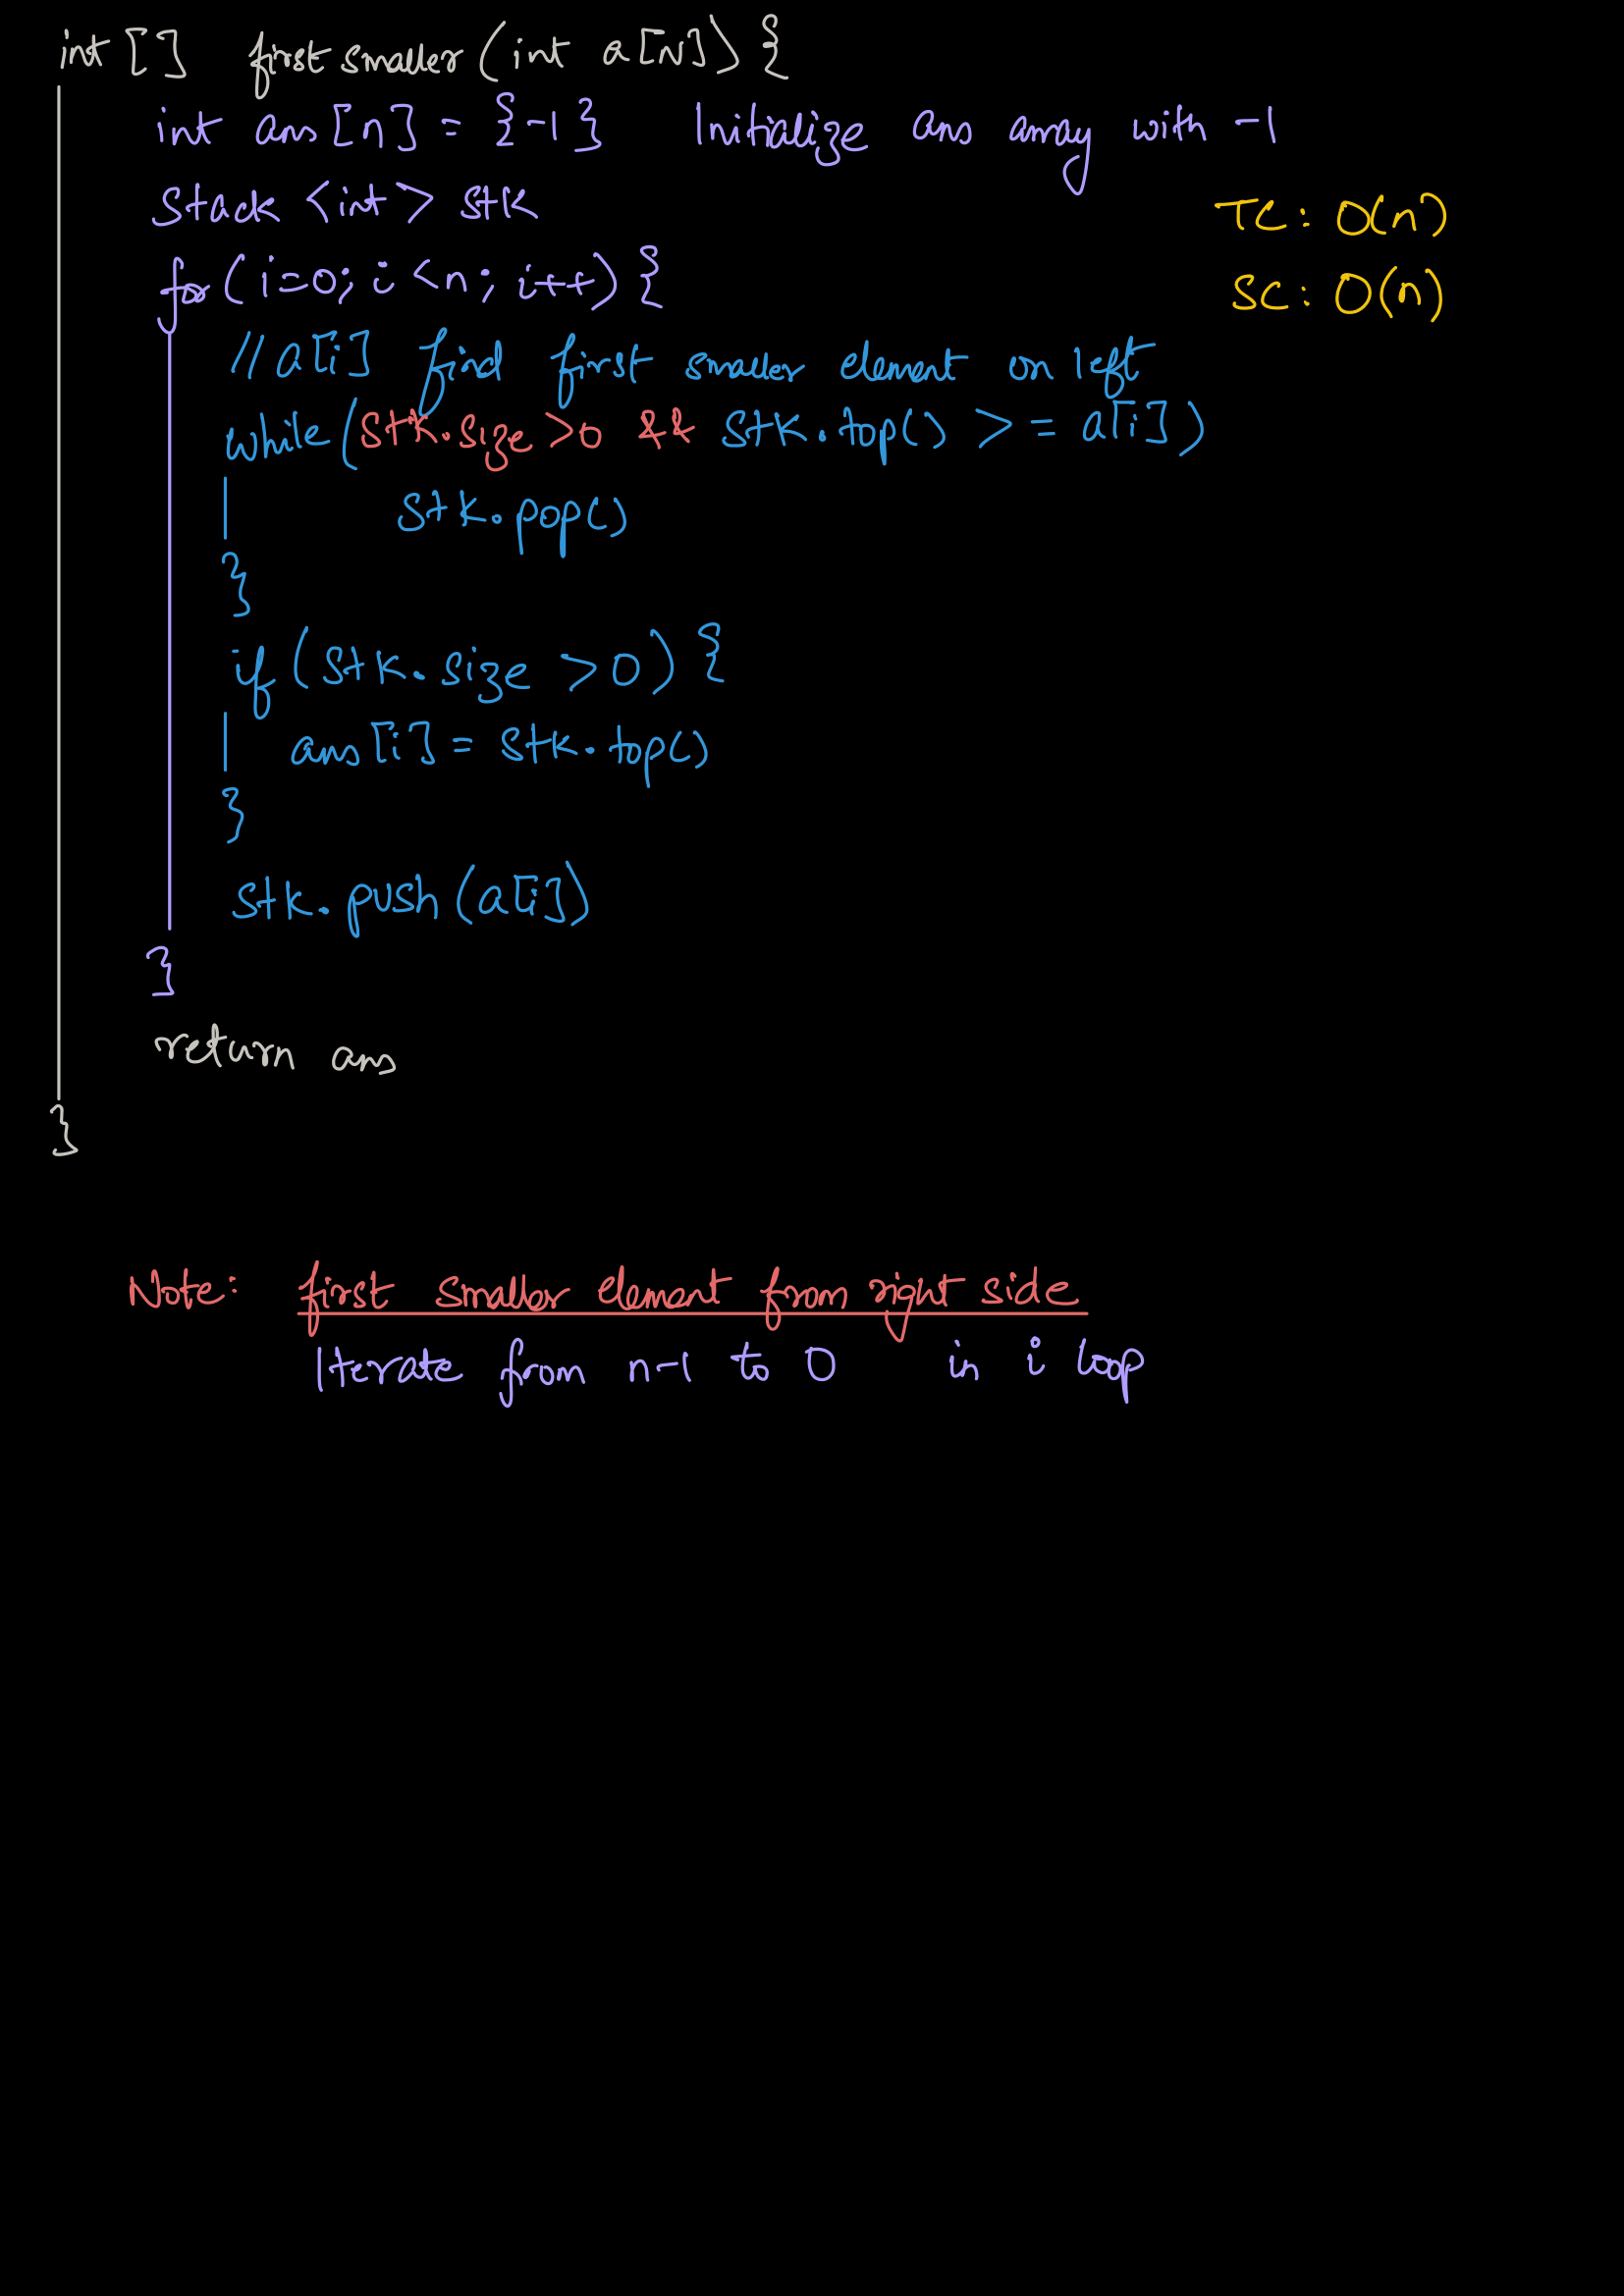 int [] first smaller (int a [N]) {
int ans [n] = {-1} Initialize ans array with -1
Stack <int> stk
TC: O(n)
for (i=0; i<n; i++) {
SC: O(n)
// a[i] find first smaller element on left
while (stk.size>0 && stk.top() >= a[i])
stk.pop()
}
if (stk.size >0) {
ans [i] = stk.top()
}
stk.push (a[i])
}
return ans
}
Note: first smaller element from right side
Iterate from n-1 to 0 in i loop